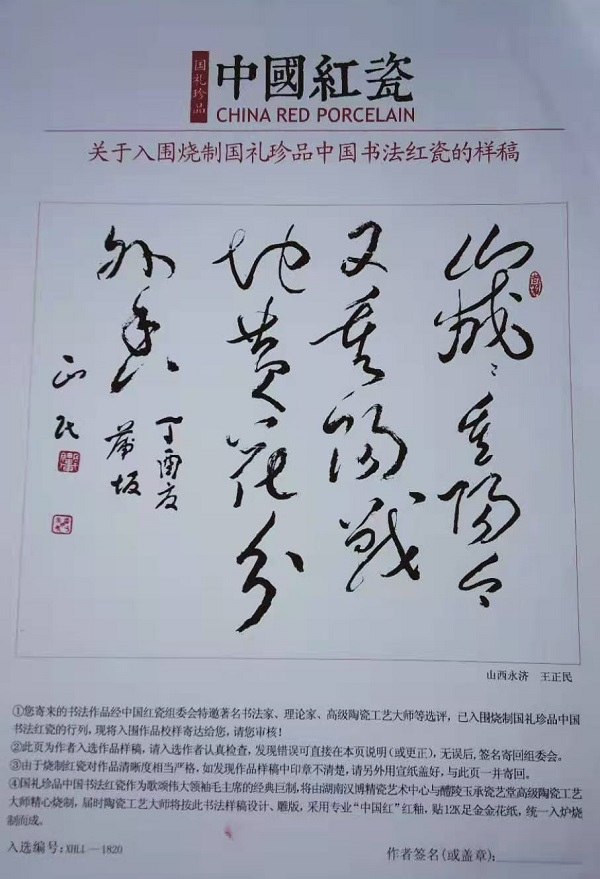 国礼珍品
中國紅瓷
CHINA RED PORCELAIN
关于入围烧制国礼珍品中国书法红瓷的样稿
歲〻重陽今
又重陽戰
地黄花分
外香
丁酉夏
蒲坂
正民
山西永济 王正民
①您寄来的书法作品经中国红瓷组委会特邀著名书法家、理论家、高级陶瓷工艺大师等选评，已入围烧制国礼珍品中国
书法红瓷的行列，现将入围作品校样寄达给您，请您审核！
②此页为作者入选作品样稿，请入选作者认真检查，发现错误可直接在本页说明(或更正)，无误后，签名寄回组委会。
③由于烧制红瓷对作品清晰度相当严格，如发现作品样稿中印章不清楚，请另外用宣纸盖好，与此页一并寄回。
④国礼珍品中国书法红瓷作为歌颂伟大领袖毛主席的经典巨制，将由湖南汉博精瓷艺术中心与醴陵玉承瓷艺堂高级陶瓷工艺
大师精心烧制，届时陶瓷工艺大师将按此书法样稿设计、雕版，采用专业“中国红”红釉，贴12K足金金花纸，统一入炉烧
制而成。
入选编号：XHLL－1820
作者签名(或盖章)：